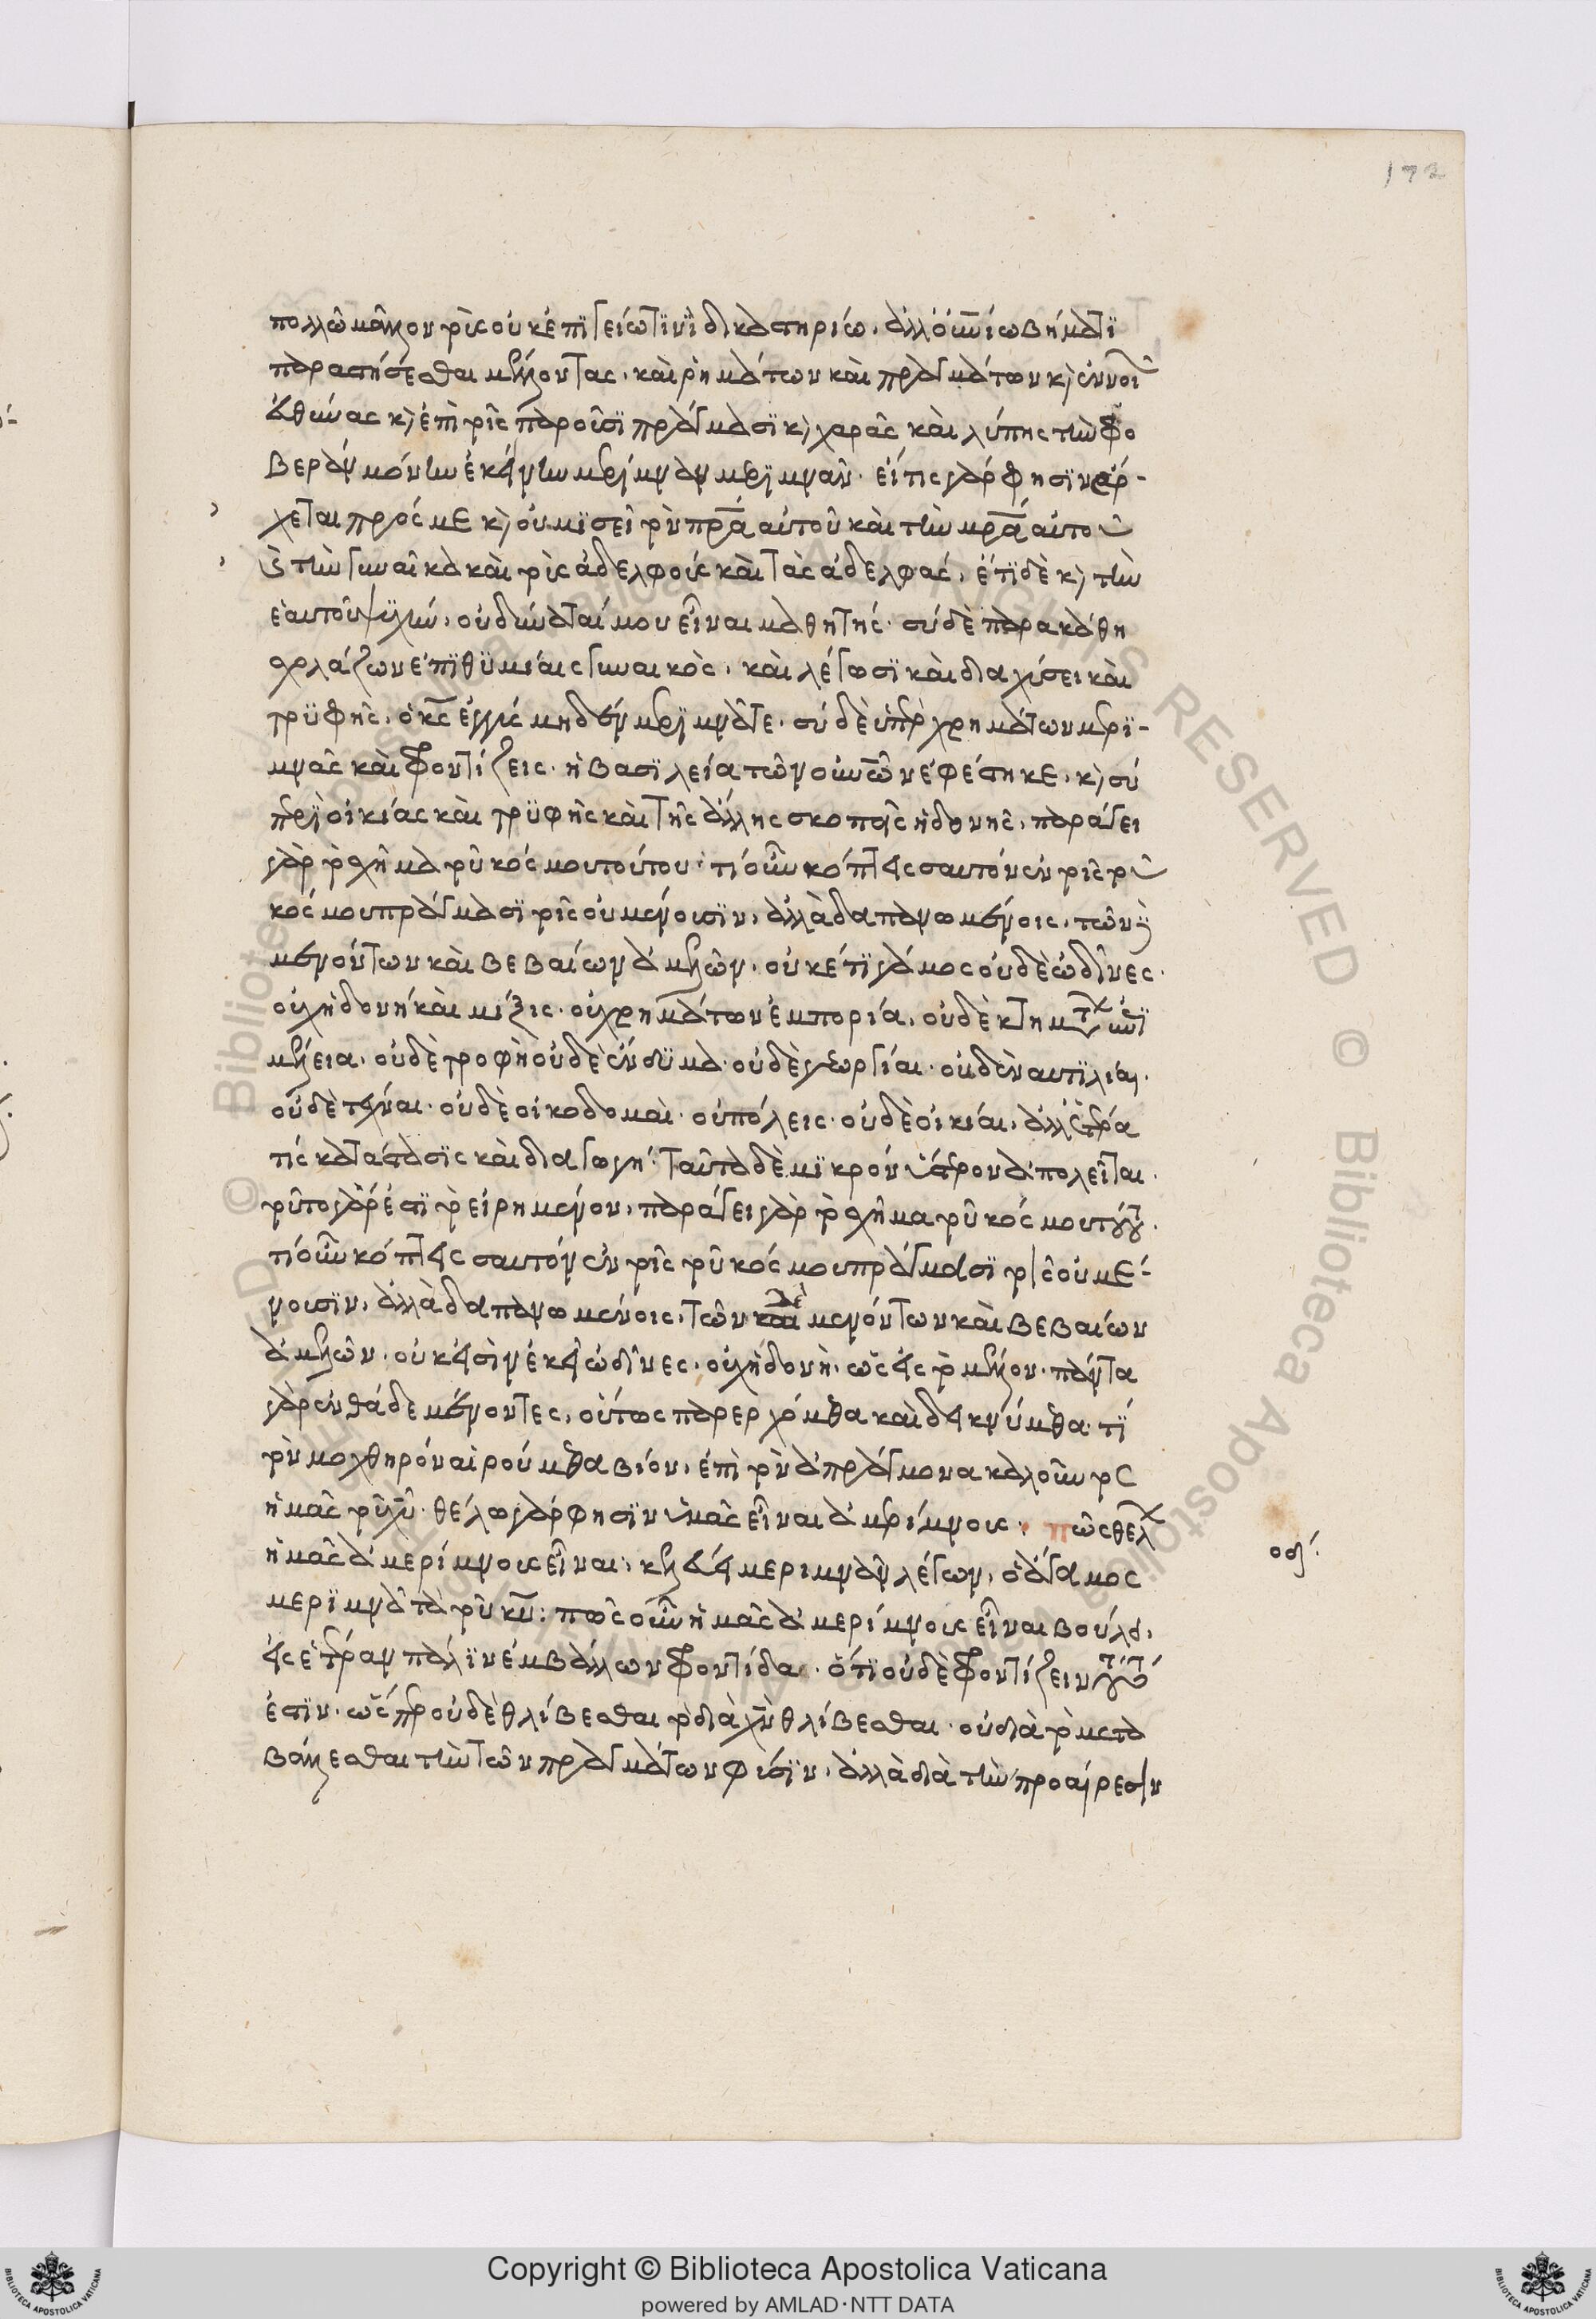 172
πολλῶ μᾶλλον τοὺς οὐκ ἐπιγείω τινὶ δικαστηρίω, ἀλλ' οὐνίω βήματι
παραστήσεσθαι μέλλοντας, καὶ ῥημάτων καὶ πραγμάτων κ) ἐννοι
εὐθύνας κ) ἐπὶ τοῖς παροῦσι πράγμασι κ) χαρᾶς καὶ λύπης τὴν φο
βερὰν μόνην ἐκείνην μέριμναν μεριμνᾶν· εἴ τις γάρ φησιν ἔρ-
χεται πρός με κ) οὐ μισεῖ τὸν πρα αὐτοῦ καὶ τὴν μρα αὐτοῦ
κ) τὴν γυναῖκα καὶ τοὺς ἀδελφοὺς καὶ τὰς ἀδελφάς, ἔτι δὲ κ) τὴν
ἑαυτοῦ ψυχὴν, οὐ δύναταί μου εἶναι μαθητής· σὺ δὲ παρακάθη
σχολάζων ἐπιθυμίαις γυναικὸς, καὶ γέλωσι καὶ διαχύσει καὶ
τρυφῆς, ὁ κς ἐγγὺς μηδὲν μεριμνᾶτε· σὺ δὲ ὑπὲρ χρημάτων μερι-
μνᾶς καὶ φροντίζεις· ἡ βασιλεία τῶν οὐνῶν ἐφέστηκε, κ) σὺ
περὶ οἰκίας καὶ τρυφῆς καὶ τῆς ἄλλης σκοπεῖς ἡδονῆς, παράγει
γὰρ τὸ σχῆμα τοῦ κόσμου τούτου· τί οὖν κόπτεις σαυτὸν ἐν τοῖς τοῦ
κόσμου πράγμασι τοῖς οὐ μένουσιν, ἀλλὰ δαπανωμένοις, τῶν δὲ
μενόντων καὶ βεβαίων ἀμελῶν, οὐκέτι γάμος οὐδὲ ὠδῖνες·
οὐχ ἡδονὴ καὶ μίξις· οὐ χρημάτων ἐμπορία, οὐδὲ κτημάτων ἐπι
μέλεια, οὐδὲ τροφὴ οὐδὲ ἔνδυμα· οὐδὲ γεωργίαι· οὐδὲ ναυτιλίαι·
οὐδὲ τέχναι· οὐδὲ οἰκοδομαὶ· οὐ πόλεις· οὐδὲ οἰκίαι, ἀλλ' ἑτέρα
τὶς κατάστασις καὶ διαγωγή· ταῦτα δὲ μικρὸν ὕστερον ἀπολεῖται·
τοῦτο γάρ ἐστι τὸ εἰρημένον, παράγει γὰρ τὸ σχῆμα τοῦ κόσμου τούτου·
τί οὖν κόπτεις σαυτὸν ἐν τοῖς τοῦ κόσμου πράγμασι τοῖς οὐ μέ-
νουσιν, ἀλλὰ δαπανωμένοις, τῶν δὲ μενόντων καὶ βεβαίων
ἀμελῶν· οὐκ εἰσὶν ἐκεῖ ὠδῖνες· οὐχ ἡδονὴ, ὡς εἰς τὸ μέλλον· πάντα
γὰρ ἐνθάδε μένοντες, οὕτως παρερχόμεθα καὶ δεικνύμεθα· τί
τὸν μοχθηρὸν αἱρούμεθα βίον, ἐπὶ τὸν ἀπράγμονα καλοῦντος
ἡμᾶς τοῦ χυ· θέλω γάρ φησιν ὑμᾶς εἶναι ἀμερίμνους· πῶς θέλεις
ἡμᾶς ἀμερίμνους εἶναι, κελεύει μεριμνᾶν λέγων, ὁ ἄγαμος
μεριμνᾶ τὰ τοῦ κυ· πῶς οὖν ἡμᾶς ἀμερίμνους εἶναι βούλει,
εἰς ἑτέραν πάλιν ἐμβάλλων φροντίδα· ὅτι οὐδὲ φροντίζειν τοῦτό
ἐστιν· ὥσπερ οὐδὲ θλίβεσθαι τὸ διὰ χν θλίβεσθαι· οὐ διὰ τὸ μετα
βάλλεσθαι τὴν τῶν πραγμάτων φύσιν, ἀλλὰ διὰ τὴν προαίρεσιν
Copyright © Biblioteca Apostolica Vaticana
powered by AMLAD·NTT DATA